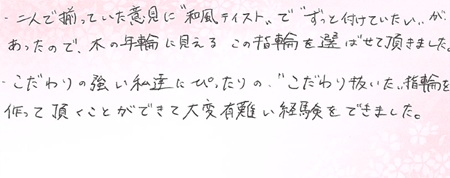 ・二人で揃っていた意見に"和風テイスト"で"ずっと付けていたい"が
あったので、木の年輪に見える この指輪を選ばせて頂きました。
・こだわりの強い私達にぴったりの、"こだわり抜いた"指輪を
作って頂くことができて大変有難い経験をできました。